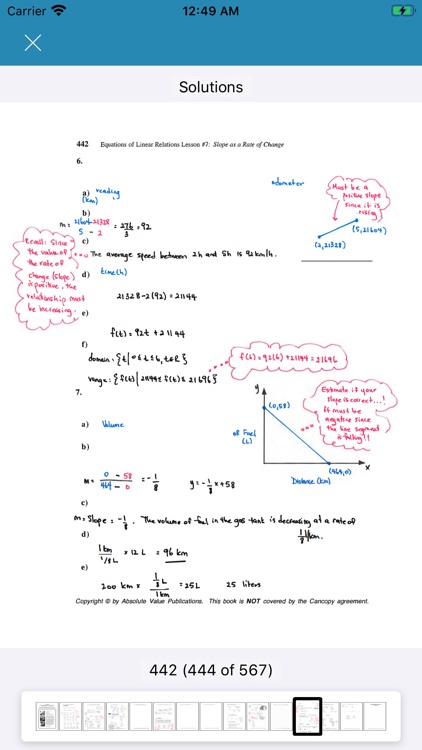 Carrier 12:49 AM
Solutions
442 Equations of Linear Relations Lesson #7: Slope as a Rate of Change
6.
odometer
reading
a) (km)
Must be a
positive slope
since it is
rising
(5, 21604)
(2, 21328)
b)
m = 21604-21328 / 5 - 2 = 276/3 = 92
c)
The average speed between 2h and 5h is 92 km/h.
Recall: Since
the value of
the rate of
change (slope)
is positive, the
relationship must
be increasing.
d) time (h)
21328 - 2(92) = 21144
e)
f(t) = 92t + 21144
f)
domain: {t | 0 ≤ t ≤ 6, t ∈ R}
f(6) = 92(6) + 21144 = 21696
range: {f(t) | 21144 ≤ f(t) ≤ 21696}
7.
y
(0,58)
of Fuel
(L)
(464,0)
x
Distance (km)
Estimate if your
slope is correct...!
It must be
negative since
the line segment
is falling!!
a) Volume
b)
m = 0 - 58 / 464 - 0 = -1/8 y = -1/8 x + 58
c)
m = slope = -1/8. The volume of fuel in the gas tank is decreasing at a rate of
d)
1 km / 1/8 L × 12 L = 96 km
e)
200 km × 1/8 L / 1 km = 25L 25 liters
Copyright © by Absolute Value Publications. This book is NOT covered by the Cancopy agreement.
442 (444 of 567)